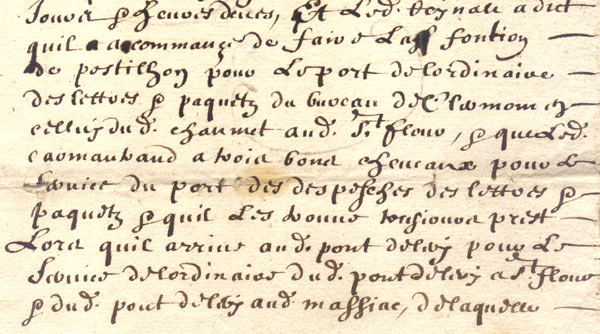 Jours & heures dictes, Et Led. Reynal a dict
quil a accommancé de faire La fontion
de postilhon pour Le port de lordinaire
des lettres & paquetz du bureau de Clermont
celluy dud. chaumet aud. St flour, & que Led.
a trois bons chevaux pour Le
service du port des despesches des lettres &
paquetz & quil Les donne tousiours prest
Lors quil arrive aud. pont de lery pour Le
service de lordinaire dud. pont de lery a St flour
& dud. pont de lery aud. massiac, de laquelle